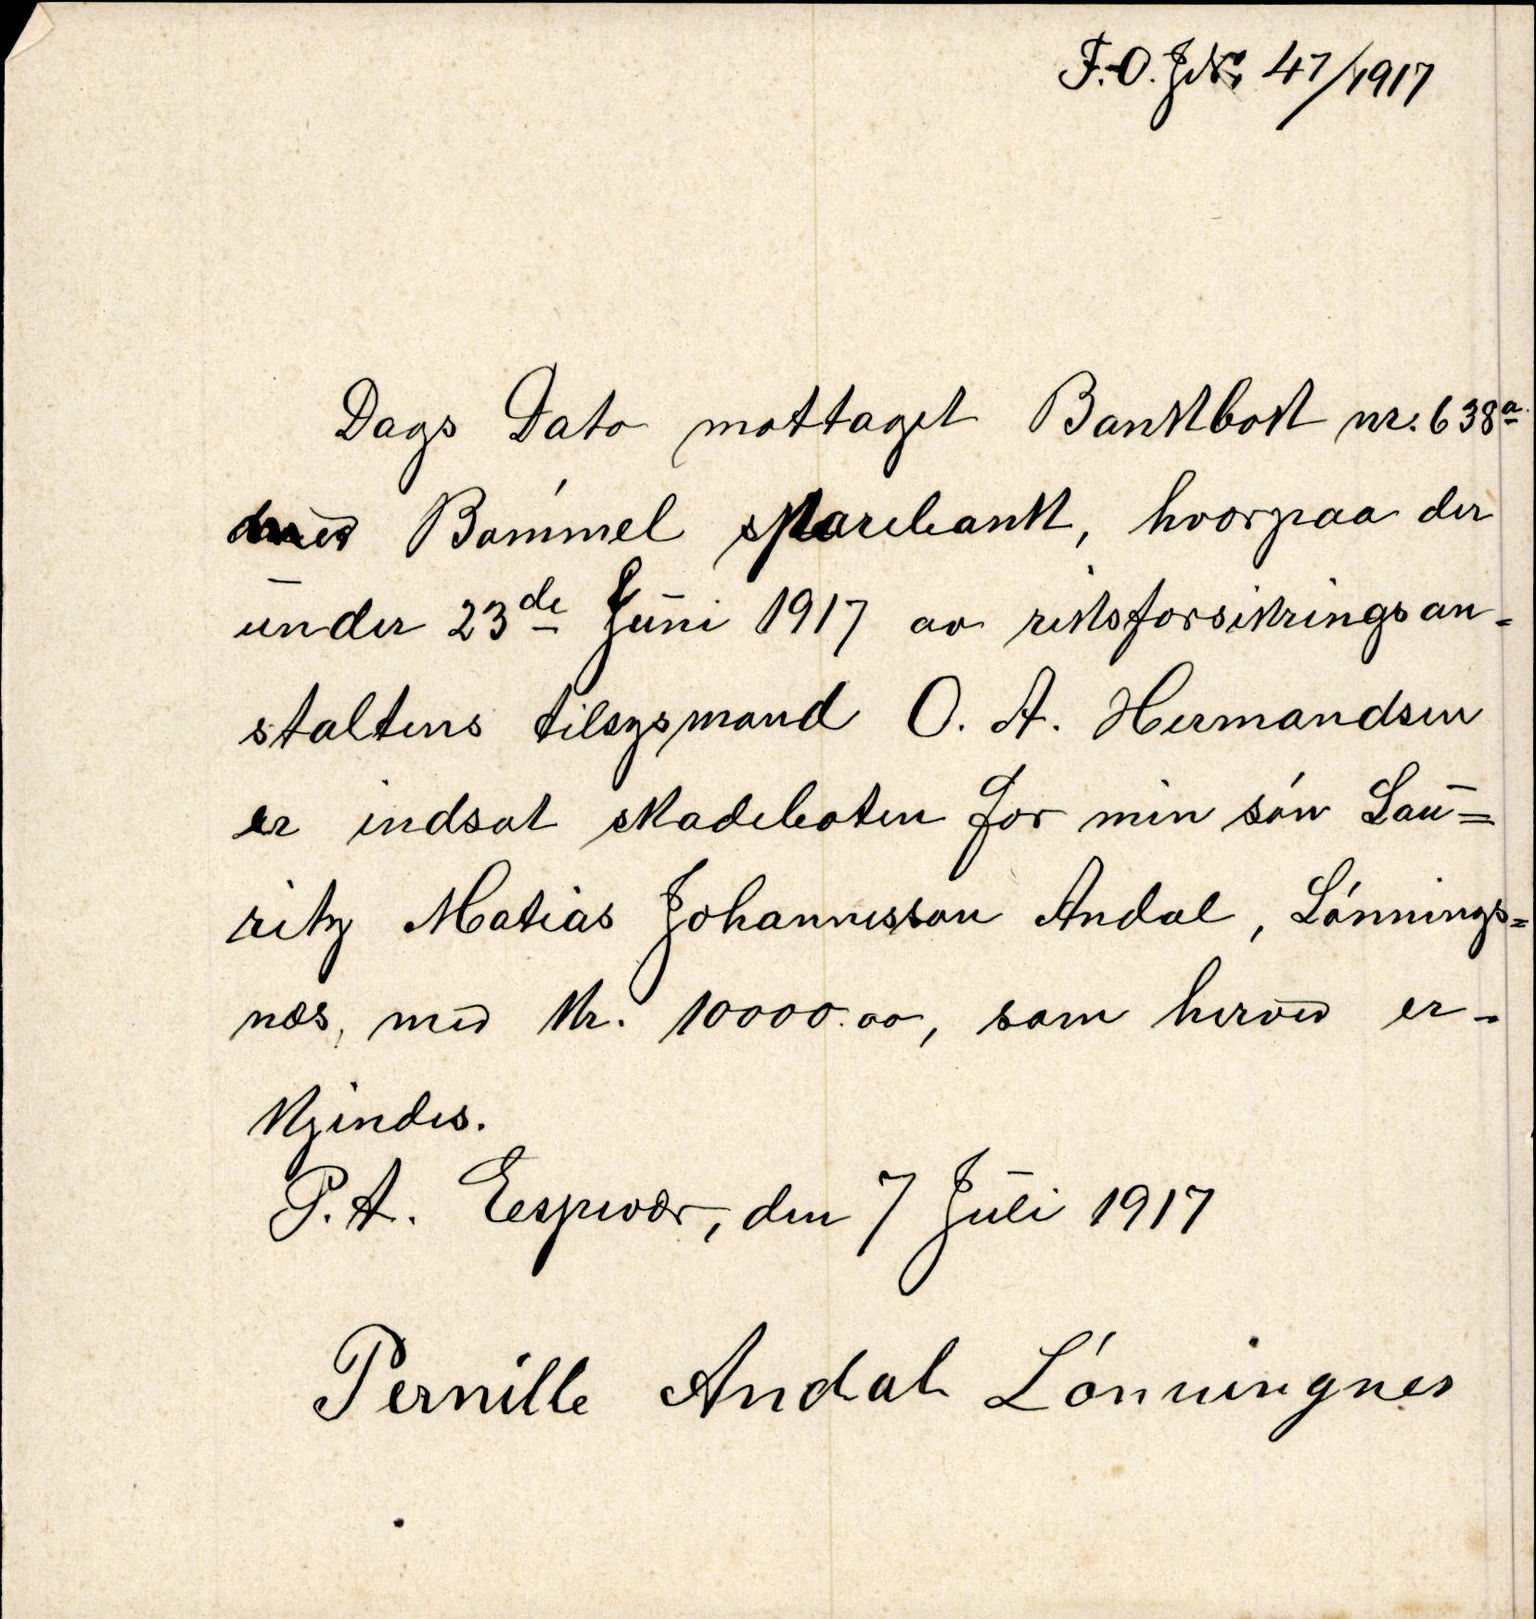 F.O. J.Nr. 47/1917
Dags Dato mottaget Bankbok nr. 638a
ved Bømmel sparebank, hvorpaa der
under 23de Juni 1917 av riksforsikringsan-
staltens tilsynsmand O. A. Hermandsen
er indsat skadeboten for min søn Lau=
ritz Matias Johannesson Andal, Lønnings=
næs, med Kr. 10000.00, som herved er-
kjendes.
P.A. Espevær, den 7 Juli 1917
Pernille Andal Lønningnes